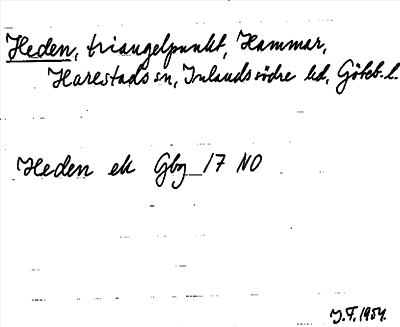 Heden, triangelpunkt, Hammar,
Harestads sn, Inlands södre hd, Göteb. l.
Heden ek Gbg_17 NO
J.F. 1954.